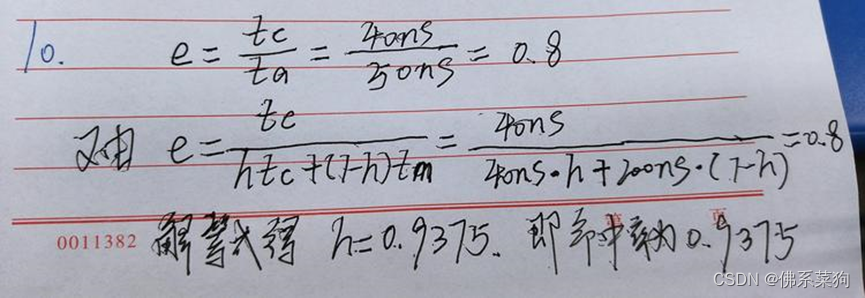 10. e = tc/ta = 40ns/50ns = 0.8
又由 e = tc/(htc+(1-h)tm) = 40ns/(40ns·h+200ns·(1-h)) = 0.8
0011382 解等式得 h=0.9375. 即命中率为0.9375
CSDN @佛系菜狗